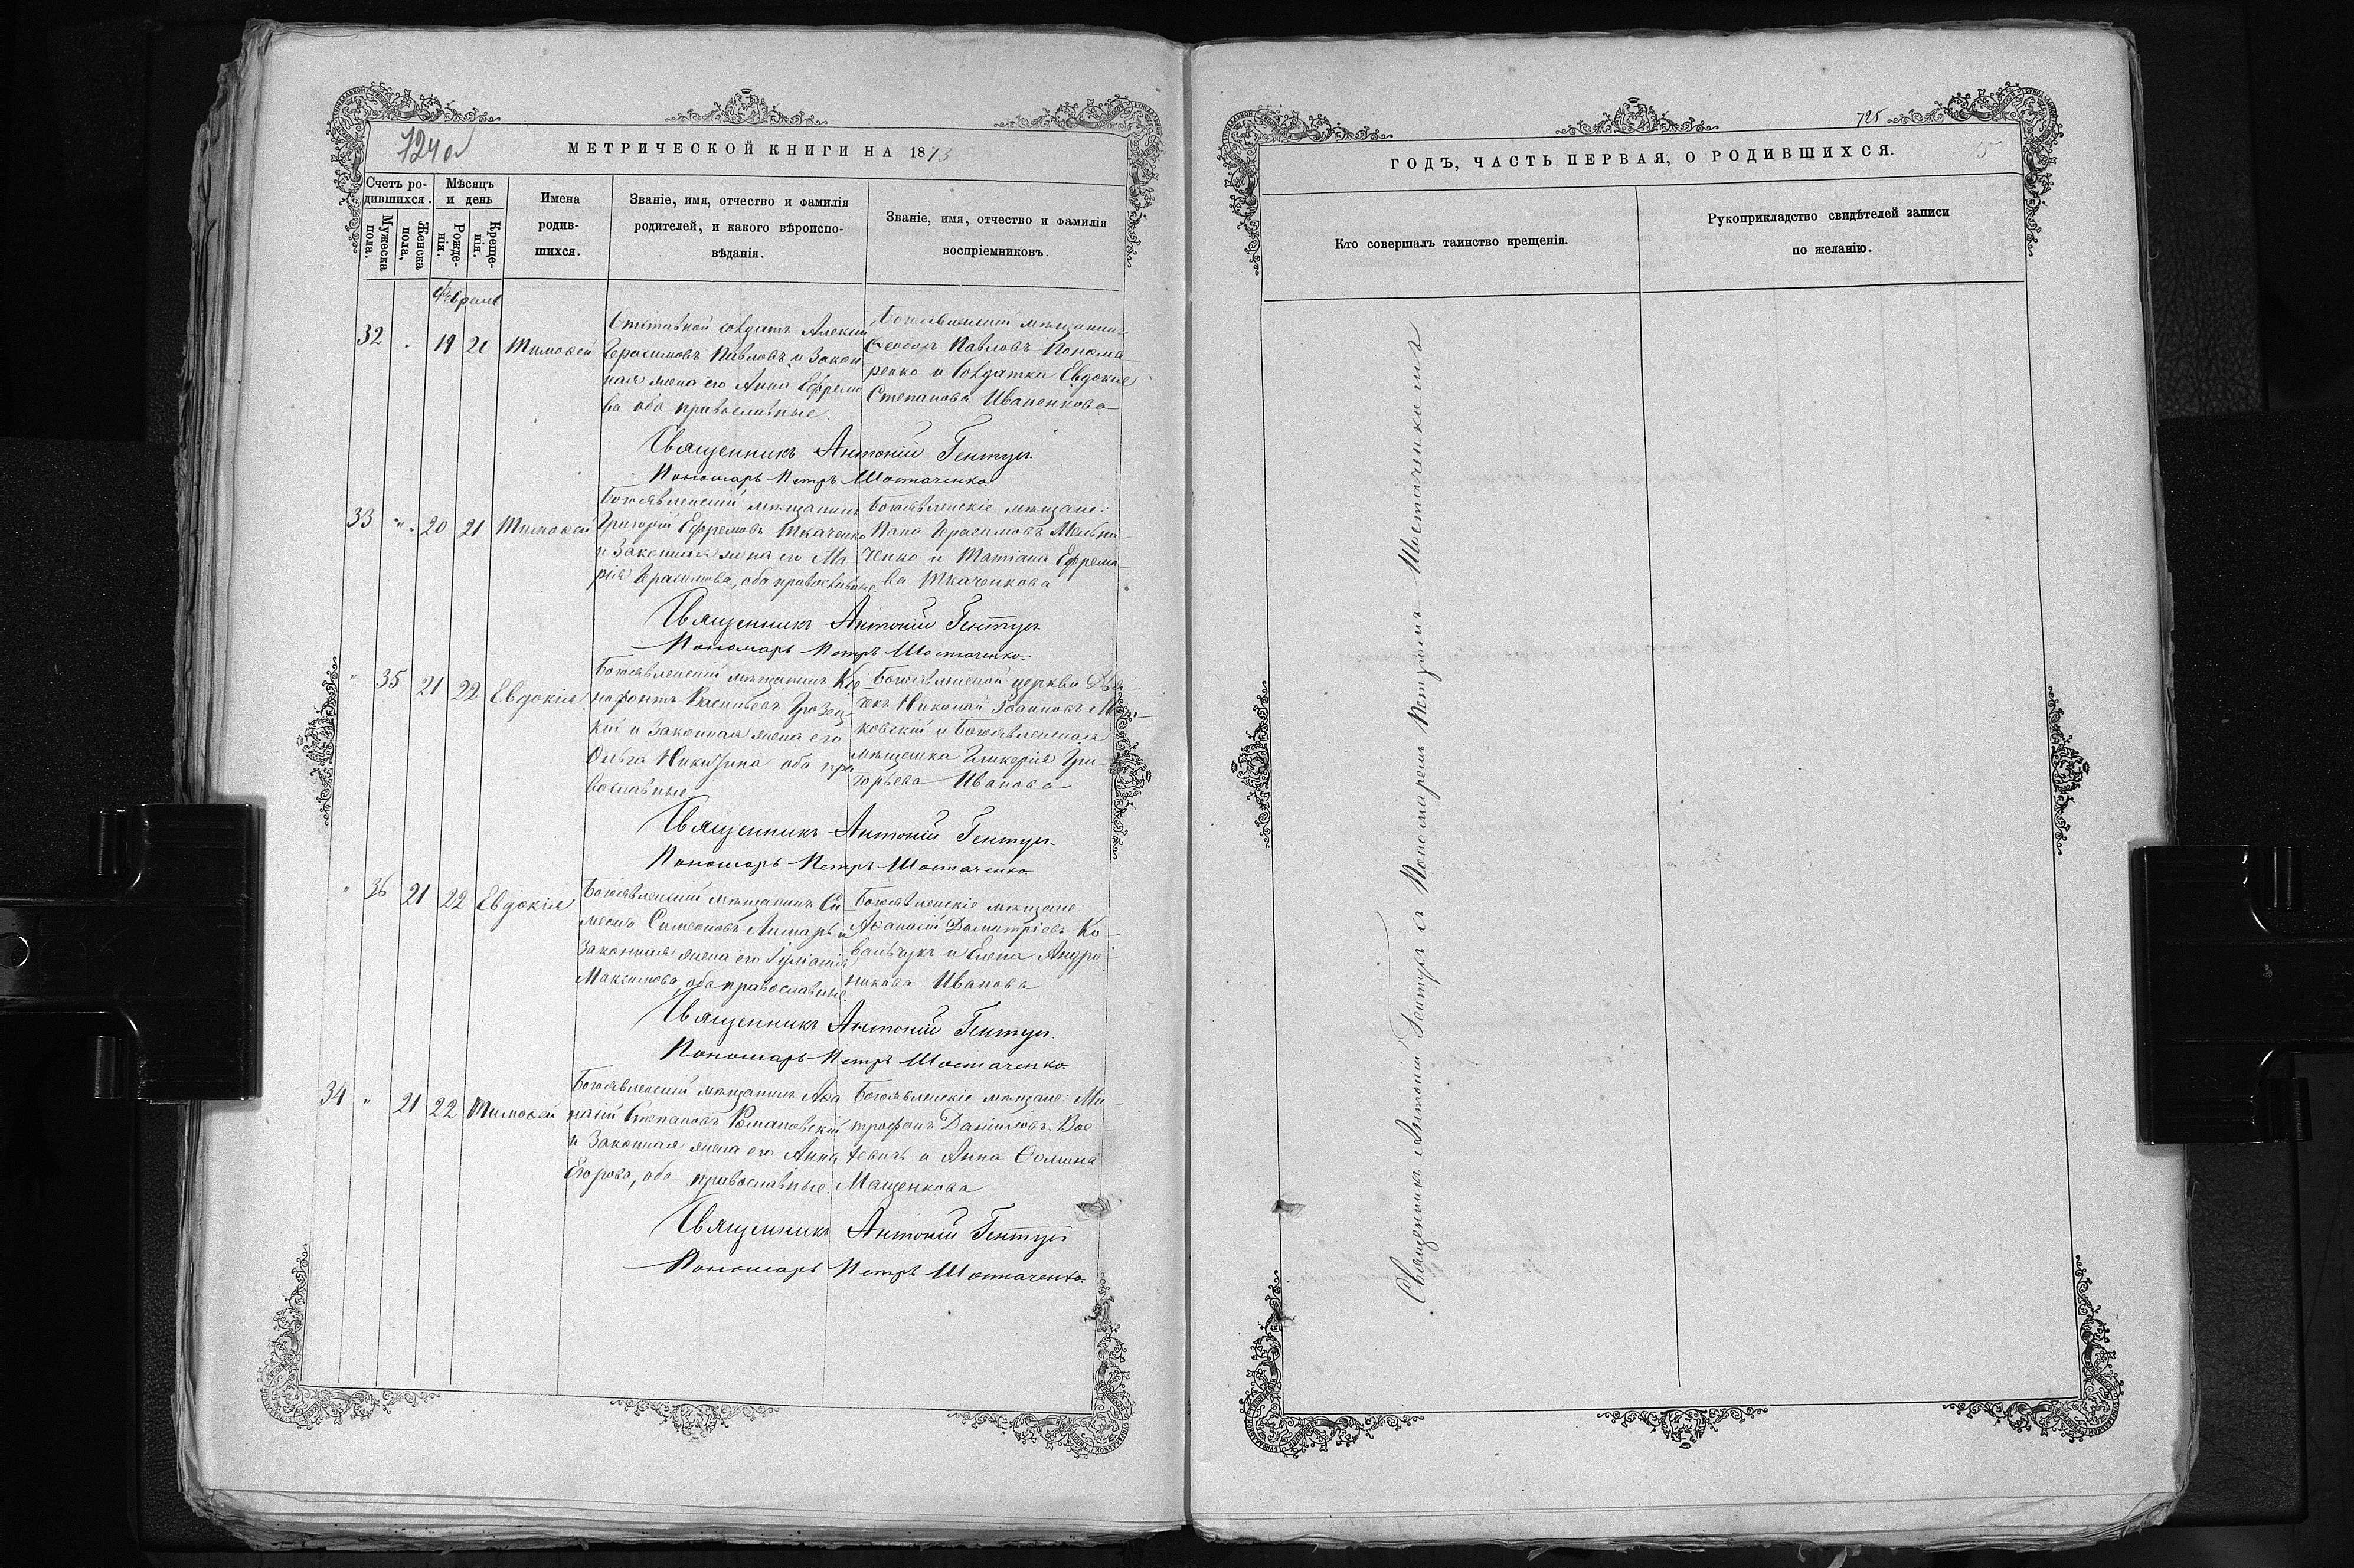 724 об
МЕТРИЧЕСКОЙ КНИГИ НА 1873
Счетъ ро-
дившихся.
Мужеска
пола.
Женска
пола,
Мѣсяцъ
и день
Рожде-
нія.
Креще-
нія.
Имена
родив-
шихся.
Званіе, имя, отчество и фамилія
родителей, и какого вѣроиспо-
вѣданія.
Званіе, имя, отчество и фамилія
воспріемниковъ.
Февраль
32 19 21 Тимоѳей
Отставной солдатъ Алексій
Герасимовъ Павловъ и Закон
ная жена его Анна Ефремо
ва оба православные
Богоявленскій мѣщанинъ
Ѳеодоръ Павловъ Понома-
ренко и Солдатка Евдокія
Степанова Иваненкова
Священникъ Антоній Гентуъ
Пономарь Петръ Шостаченко
33 " 20 21 Тимоѳей
Богоявленскій мѣщанинъ
Григорій Ефремовъ Ткаченко
и Законная жена его Ма-
рія Герасимова, оба православные
Богоявленскіе мѣщане:
Герасимовъ Мельни-
ченко и Татіана Ефремо-
ва Ткаченкова
Священникъ Антоній Гентуъ
Пономарь Петръ Шостаченко
" 35 21 22 Евдокія
Богоявленскій мѣщанинъ Ксе-
нофонтъ Васильевъ
кій и Законная жена его
Ольга Никитина оба пра
вославные
Богоявленской церкви Дья-
чекъ Николай Іоанновъ
ковскій и Богоявленская
мѣщанка Гликерія Гри-
горьева Иванова
Священникъ Антоній Гентуъ
Пономарь Петръ Шостаченко
" 36 21 22 Евдокія
Богоявленскій мѣщанинъ Си
меонъ Симеоновъ Лимарь и
Законная жена его Іуліанія
Максимова, оба православные
Богоявленскіе мѣщане:
Аѳанасій Димитріевъ Ко-
вальчукъ и Елена Андро-
никова Иванова
Священникъ Антоній Гентуъ
Пономарь Петръ Шостаченко
34 " 21 22 Тимоѳей
Богоявленскій мѣщанинъ Аѳа
насій Степановъ Романовскій
и Законная жена его Анна
Егорова, оба православные.
Богоявленскіе мѣщане: Ми-
трофанъ Даниловъ
и Анна Ѳомина
Мащенкова
Священникъ Антоній Гентуъ
Пономарь Петръ Шостаченко
725
ГОДЪ, ЧАСТЬ ПЕРВАЯ, О РОДИВШИХСЯ.
Кто совершалъ таинство крещенія.
Рукоприкладство свидѣтелей записи
по желанію.
Священникъ Антоній Гентуъ съ Пономаремъ Петромъ Шостаченкомъ